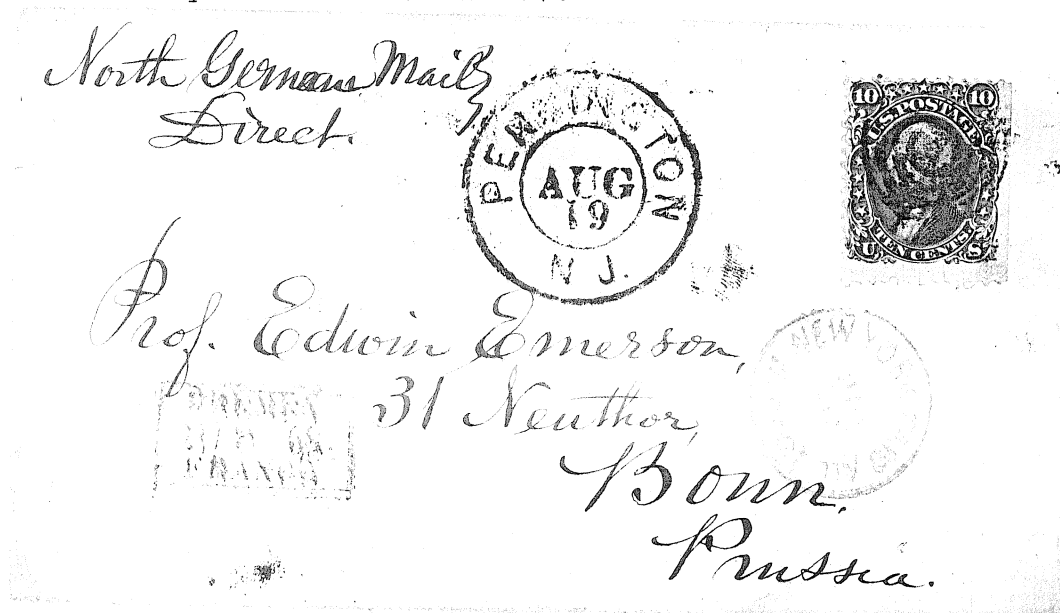 North German Mail,
Direct.
PENNINGTON
AUG
19
N J.
10 10
U.S. POSTAGE
TEN CENTS
U S
Prof. Edwin Emerson,
31 Neuthor,
Bonn,
Prussia.
NEW YORK